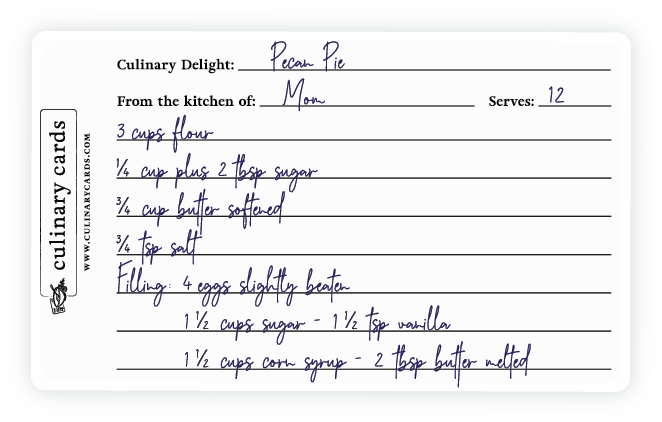 Culinary Delight: Pecan Pie
From the kitchen of: Mom Serves: 12
3 cups flour
1/4 cup plus 2 tbsp sugar
3/4 cup butter softened
3/4 tsp salt
Filling: 4 eggs slightly beaten
1 1/2 cups sugar - 1 1/2 tsp vanilla
1 1/2 cups corn syrup - 2 tbsp butter melted
culinary cards
WWW.CULINARYCARDS.COM